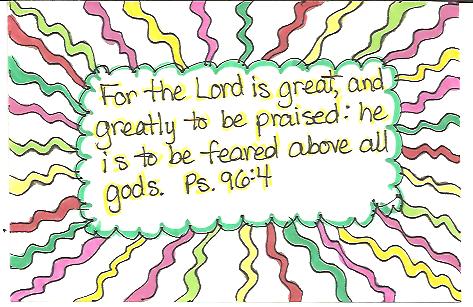 For the Lord is great, and
greatly to be praised: he
is to be feared above all
gods. Ps. 96:4